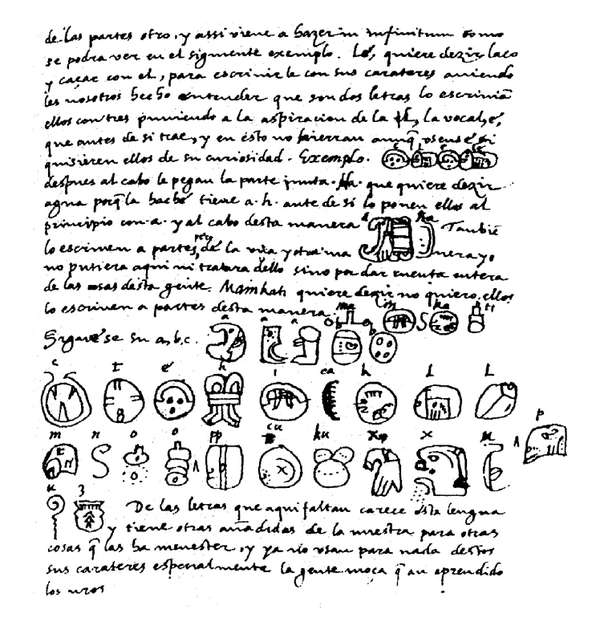 de las partes otro, y assi viene a hazer in infinitum como
se podra ver en el siguiente exemplo. Lé, quiere dezir laço
y caçar con el, para escrivirle con sus carateres aviendo
les nosotros hecho entender que son dos letras lo escrivian
ellos con tres puniendo a la aspiracion de la l, la vocal, é,
que antes de si trae, y en esto no hierran aunq̃ usense si
quisieren ellos de su curiosidad. Exemplo.
despues al cabo le pegan la parte junta. Ha. que quiere dezir
agua porq̃ la hachè tiene a. h. ante de si lo ponen ellos al
principio con. a. y al cabo desta manera Tambiē
lo escriven a partes, pero de la una y otra ma nera, yo
no pusiera aqui ni tratara dello sino por dar cuenta entera
de las cosas desta gente. Mainkati quiere dezir no quiero, ellos
lo escriven a partes desta manera ma i n ka ti
Siguese su a, b, c. a a a b b
c t é h i ca k l l
m n o o pp cu ku x x u p
u z De las letras que aqui faltan carece esta lengua
y tiene otras añadidas de la nuestra para otras
cosas q̃ las ha menester, y ya no usan para nada destos
sus carateres especialmente la gente moça q̃ an aprendido
los nros